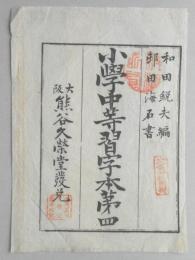 和田鋭夫編
邨田海石書
小學中等習字本第四
大阪熊谷久榮堂發兌